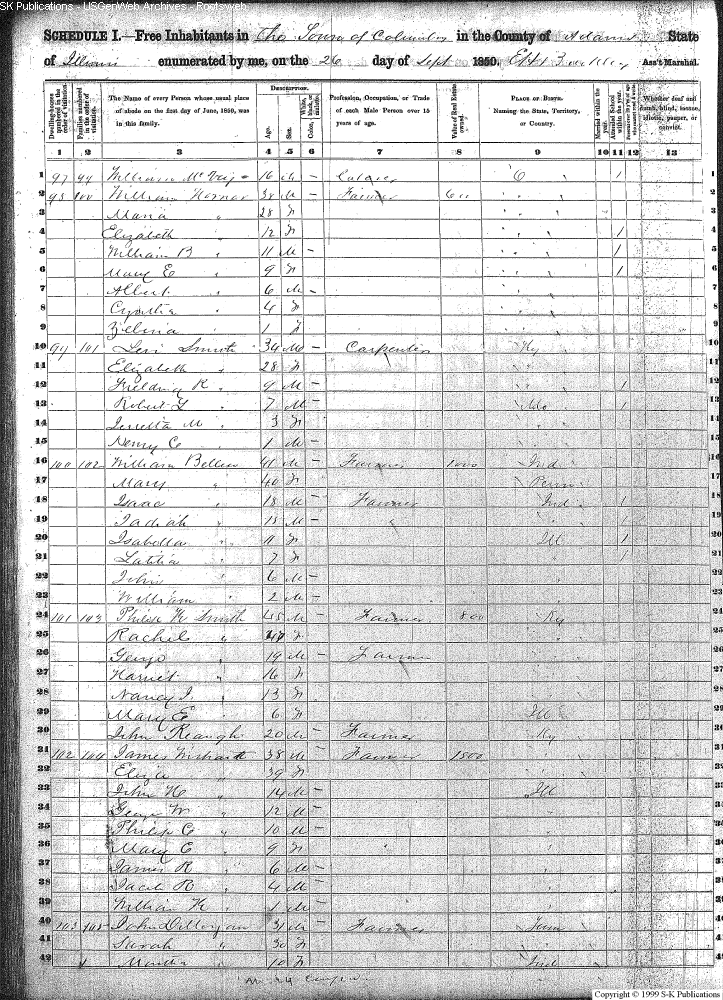 SK Publications - USGenWeb Archives - Rootsweb
SCHEDULE I.—Free Inhabitants in The Town of Columbus in the County of Adams State
of Illinois enumerated by me, on the 26 day of Sept 1850. Ass't Marshal.
Dwelling-houses numbered in the order of visitation.
Families numbered in the order of visitation.
The Name of every Person whose usual place of abode on the first day of June, 1850, was in this family.
DESCRIPTION.
Age.
Sex.
Color, White, black, or mulatto.
Profession, Occupation, or Trade of each Male Person over 15 years of age.
Value of Real Estate owned.
PLACE OF BIRTH. Naming the State, Territory, or Country.
Married within the year.
Attended School within the year.
Whether deaf and dumb, blind, insane, idiotic, pauper, or convict.
1 2 3 4 5 6 7 8 9 10 11 12 13
1 97 99 William 16 M – 1
2 98 100 William 38 M – Farmer 600
3 Maria " 28 F
4 Elizabeth " 12 F 1
5 William B " 11 M – 1
6 Mary E " 9 F 1
7 Albert " 6 M –
8 Cynthia " 4 F
9 Zelma " 1 F
10 99 101 Levi Smith 34 M – Carpenter Ky
11 Elizabeth " 28 F
12 Fielding R " 9 M – 1
13 Robert " 7 M – Mo 1
14 M " 3 F
15 Henry C " 1 M –
16 100 102 William 41 M – Farmer 1000 Ind
17 Mary " 40 F Penn
18 Isaac " 18 M – Farmer Ind 1
19 " 15 M – " 1
20 Isabella " 11 F Ill 1
21 Latitia " 7 F 1
22 John " 6 M –
23 William " 2 M –
24 101 103 Smith 45 M – Farmer 800 Ky
25 Rachel " F
26 " 19 M – Farmer
27 Harriet " 16 F
28 Nancy J. " 13 F
29 Mary E " 6 F Ill
30 John Keaugh 20 M – Farmer Ky
31 102 104 James 38 M – Farmer 1800
32 Eliza " 39 F
33 John H " 14 M – Ill
34 George W " 12 M –
35 Philip C " 10 M –
36 Mary E " 9 F
37 James R " 6 M –
38 Jacob R " 4 M –
39 William K " 1 M –
40 103 105 John 31 M – Farmer Tenn
41 Sarah " 30 F
42 Martha " 10 F Ind
Copyright © 1999 S-K Publications